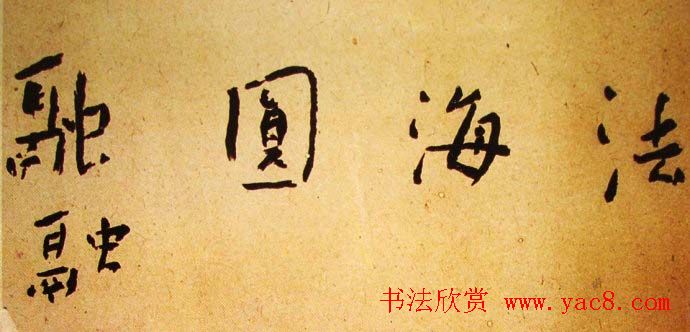 法海圓融
融
书法欣赏 www.yac8.com